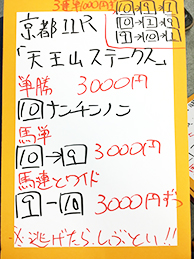 3連単1000円
10→9→1
10→1→9
9→10→1
京都11R
「天王山ステークス」
単勝 3000円
10ナンチンノン
馬単
10→9 3000円
馬連とワイド
9-10 3000円ずつ
※逃げたらしぶとい!!